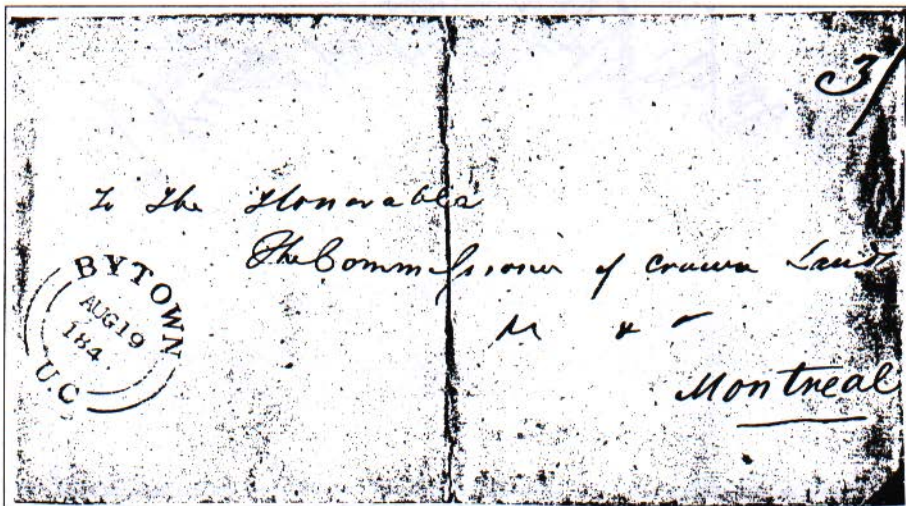 3/
To the Honorable
The Commissioner of Crown Lands
Montreal
BYTOWN
AUG 19
184
U.C.